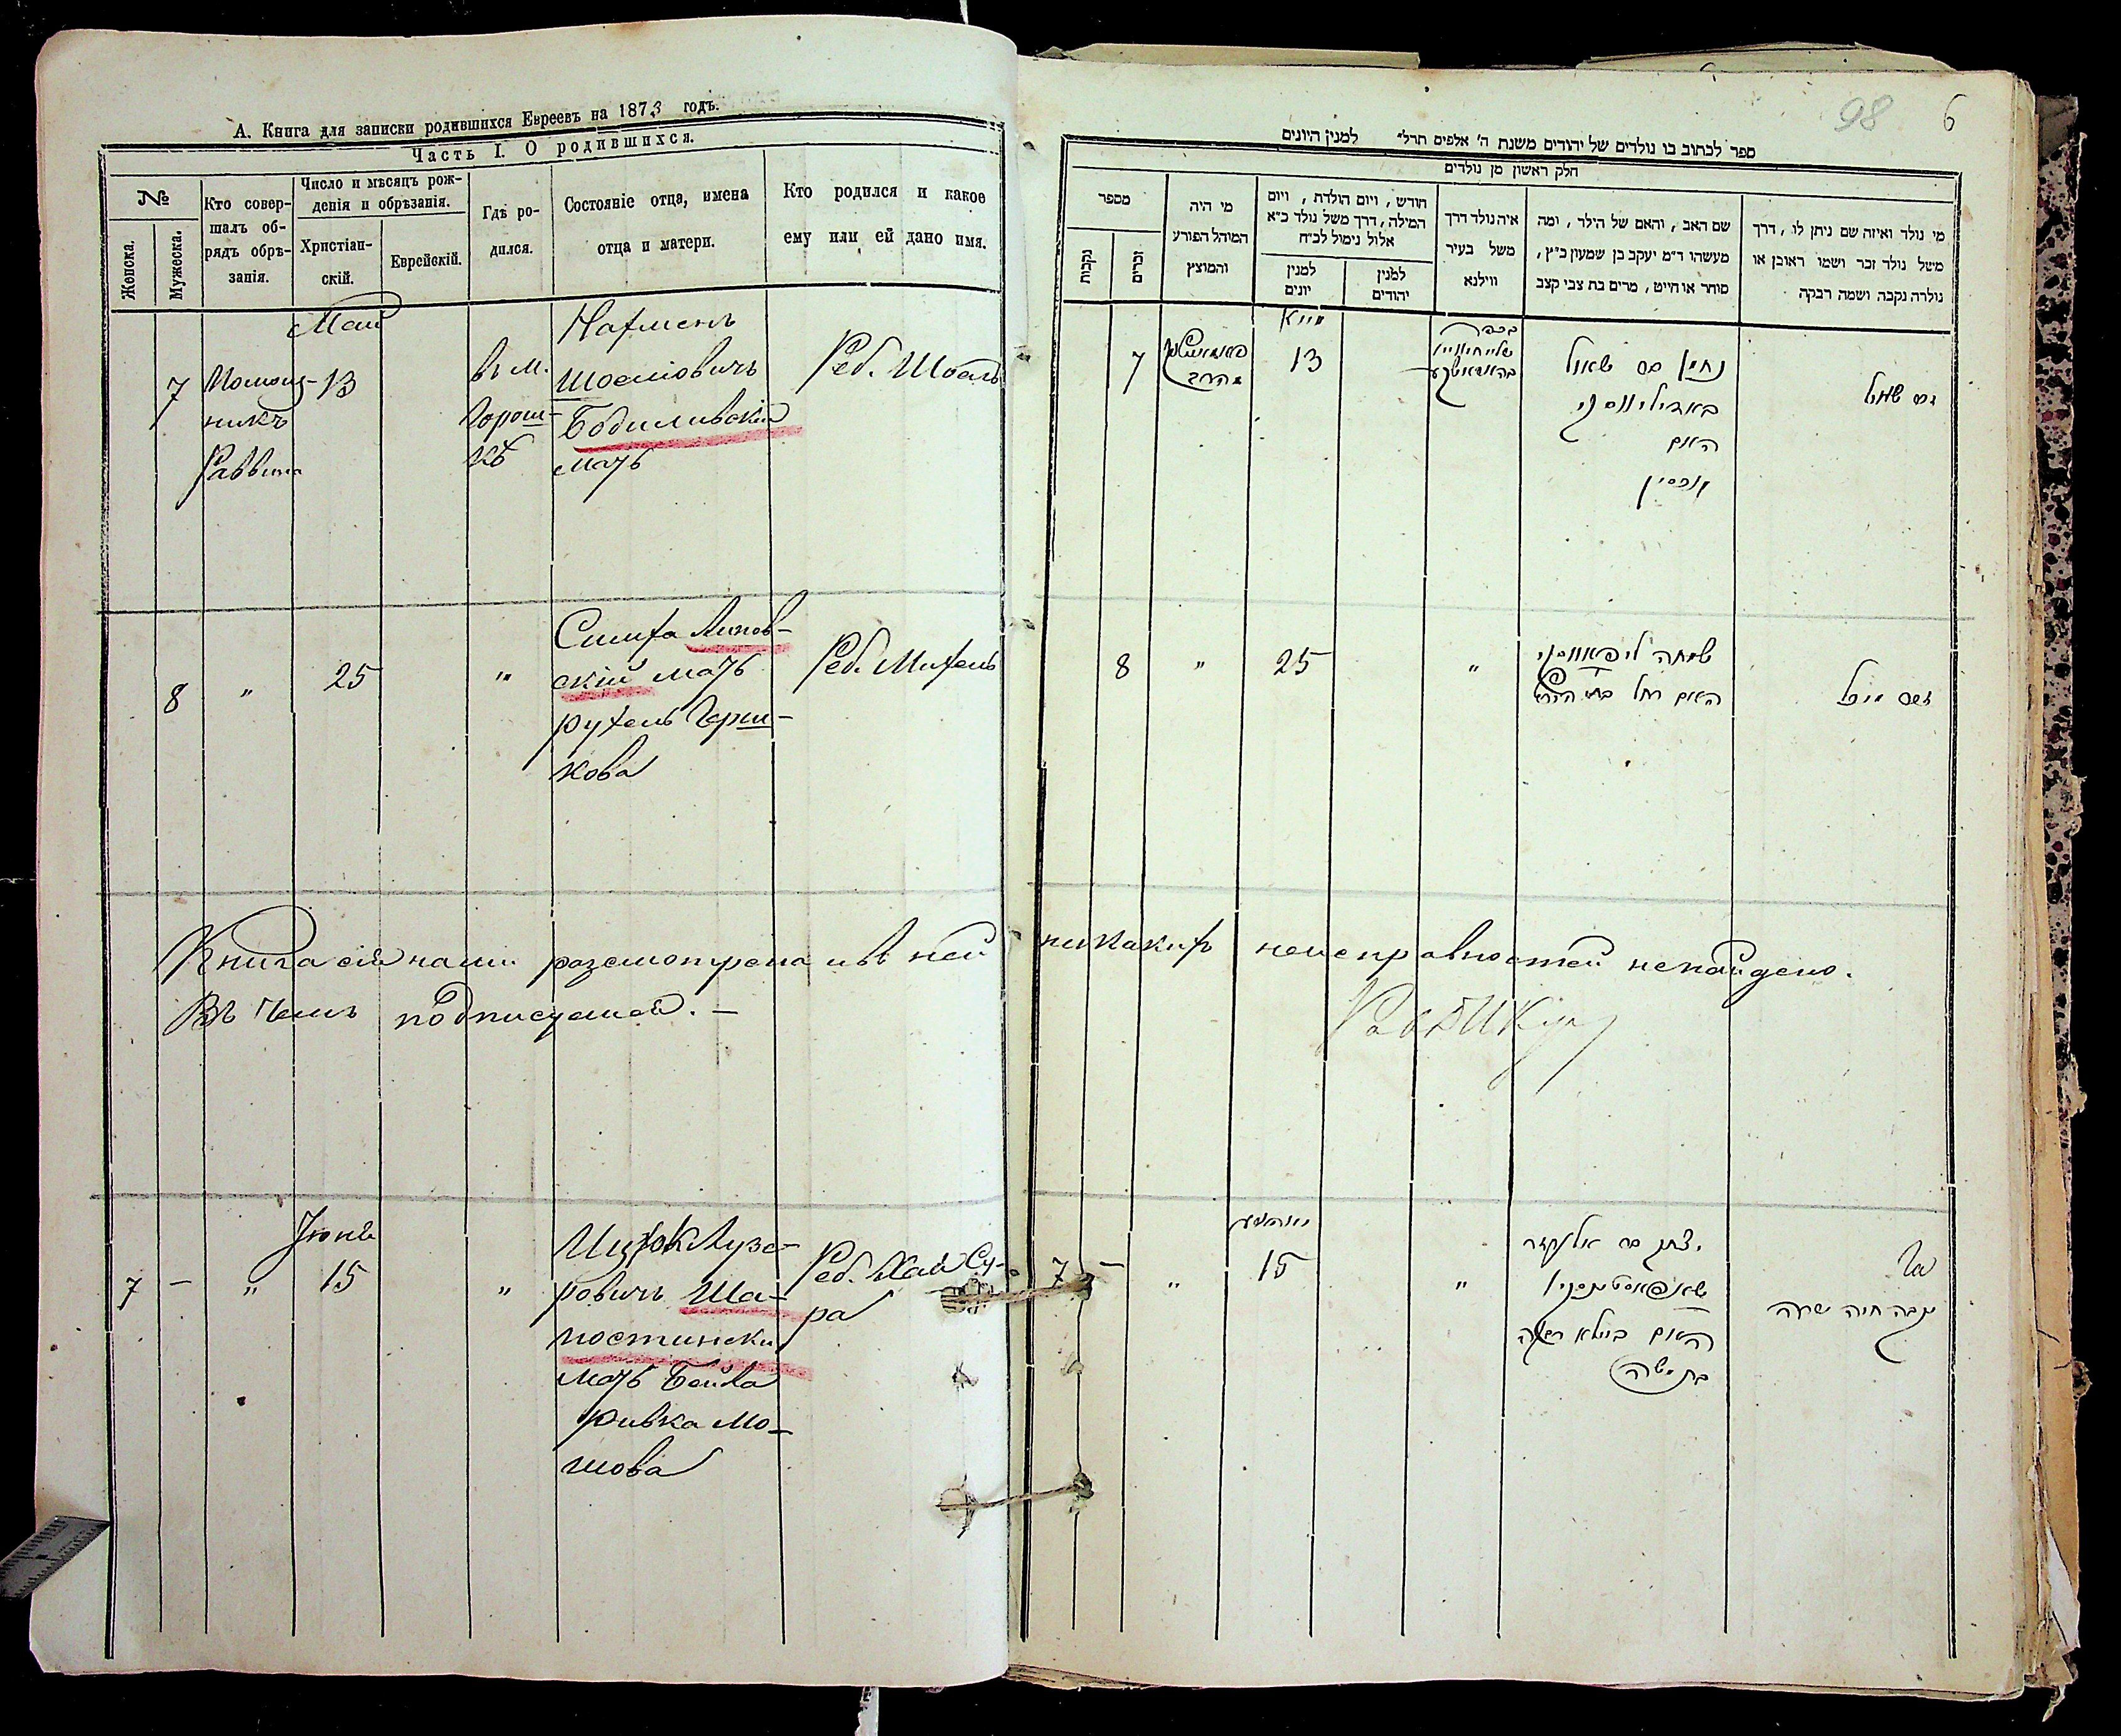 А. Книга для записки родившихся Евреевъ на 1873 годъ.
Часть I. О родившихся.
№
Женска.
Мужеска.
Кто совер-
шалъ об-
рядъ обрѣ-
занія.
Число и мѣсяцъ рож-
денія и обрѣзанія.
Христіан-
скій.
Еврейскій.
Гдѣ ро-
дился.
Состояніе отца, имена
отца и матери.
Кто родился и какое
ему или ей дано имя.
Май
7
Помощ-
никъ
Раввина
13
въ м.
Горош-
кѣ
Нахменъ
Шоеліовичъ
мать
Реб. Шоель
8
"
25
"
Симха Липов-
скій мать
Рухель Герш-
кова
Реб. Михель
Книга сія нами разсмотрена и въ ней никакихъ неисправностей ненайдено.
Въ чемъ подписуемся. –
Іюнь
7
–
"
15
"
Ицхок Лузе-
ровичъ Ша-
постински
мать Бейла
Ривка Мо-
шова
Реб. Хая Су-
ра
98
6
ספר לכתוב בו נולדים של יהודים משנת ה' אלפים תרל" למנין היונים
חלק ראשון מן נולדים
מספר
נקבות
זכרים
מי היה
המוהל הפורע
והמוצץ
חודש, ויום הולדת, ויום
המילה, דרך משל נולד כ"א
אלול נימול לכ"ח
למנין
יונים
למנין
יהודים
איה נולד דרך
משל בעיר
ווילנא
שם האב, והאם של הילד, ומה
מעשהו ד"מ יעקב בן שמעון כ"ץ,
סוחר או חייט, מרים בת צבי קצב
מי נולד ואיזה שם ניתן לו, דרך
משל נולד זכר ושמו ראובן או
נולדה נקבה ושמה רבקה
7
13
שאול
האם
8
"
25
"
שמחה ליפאווסקי
האם רחל בת
זכר מיכל
7
–
"
15
"
יצחק בר
האם ביילא רבקה
בת משה
נקבה חיה שרה